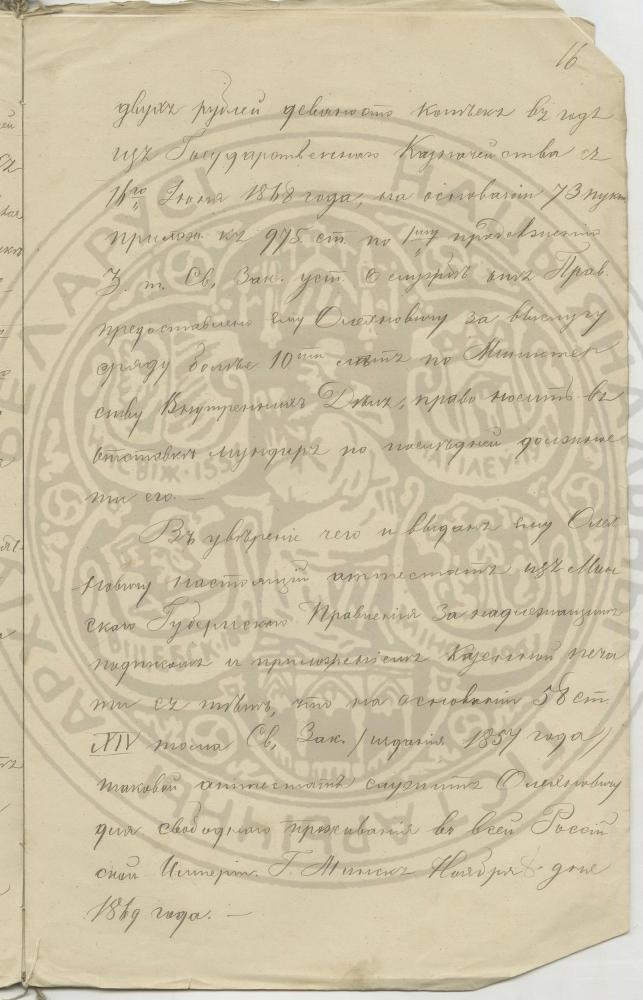 16
двухъ рублей девяносто копѣекъ въ годъ
изъ Государственнаго Казначейства съ
1868 года, на основаніи 73 пункт
прилож. къ 975 ст. по продолженію
3 т. Св. Зак. уст. о службѣ отъ Прав.
предоставлено ему Олехновичу за выслугу
сряду болѣе 10ти лѣтъ по Министер
ству Внутреннихъ Дѣлъ, право носить въ
отставкѣ мундиръ по послѣдней должнос
ти его. —
Въ увѣреніе чего и выданъ ему Олех
новичу настоящій аттестатъ изъ Мин
скаго Губернскаго Правленія за надлежащимъ
подписомъ и приложеніемъ казенной печа
ти съ тѣмъ, что на основаніи 58 ст.
XIV тома Св. Зак. /изданія 1857 года/
таковой аттестатъ служитъ Олехновичу
для свободнаго проживанія въ всей Россій
ской Имперіи. Г. Минскъ Ноября дня
1869 года. —